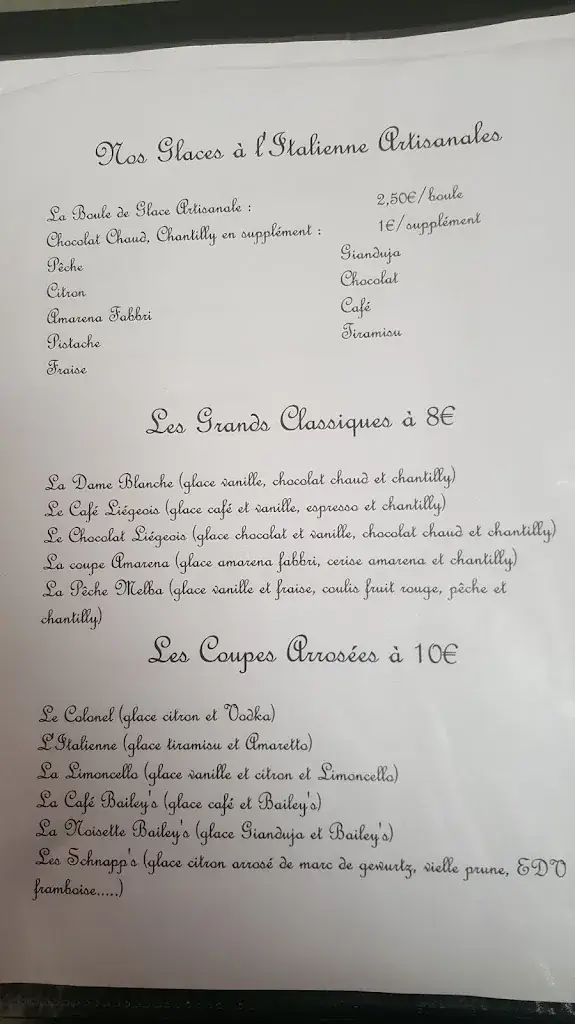 Nos Glaces à l'Italienne Artisanales
La Boule de Glace Artisanale : 2,50€/boule
Chocolat Chaud, Chantilly en supplément : 1€/supplément
Pêche Gianduja
Citron Chocolat
Amarena Fabbri Café
Pistache Tiramisu
Fraise
Les Grands Classiques à 8€
La Dame Blanche (glace vanille, chocolat chaud et chantilly)
Le Café Liégeois (glace café et vanille, espresso et chantilly)
Le Chocolat Liégeois (glace chocolat et vanille, chocolat chaud et chantilly)
La coupe Amarena (glace amarena fabbri, cerise amarena et chantilly)
La Pêche Melba (glace vanille et fraise, coulis fruit rouge, pêche et
chantilly)
Les Coupes Arrosées à 10€
Le Colonel (glace citron et Vodka)
L'Italienne (glace tiramisu et Amaretto)
La Limoncello (glace vanille et citron et Limoncello)
La Café Bailey's (glace café et Bailey's)
La Noisette Bailey's (glace Gianduja et Bailey's)
Les Schnapp's (glace citron arrosé de marc de gewurtz, vielle prune, EDV
framboise.....)